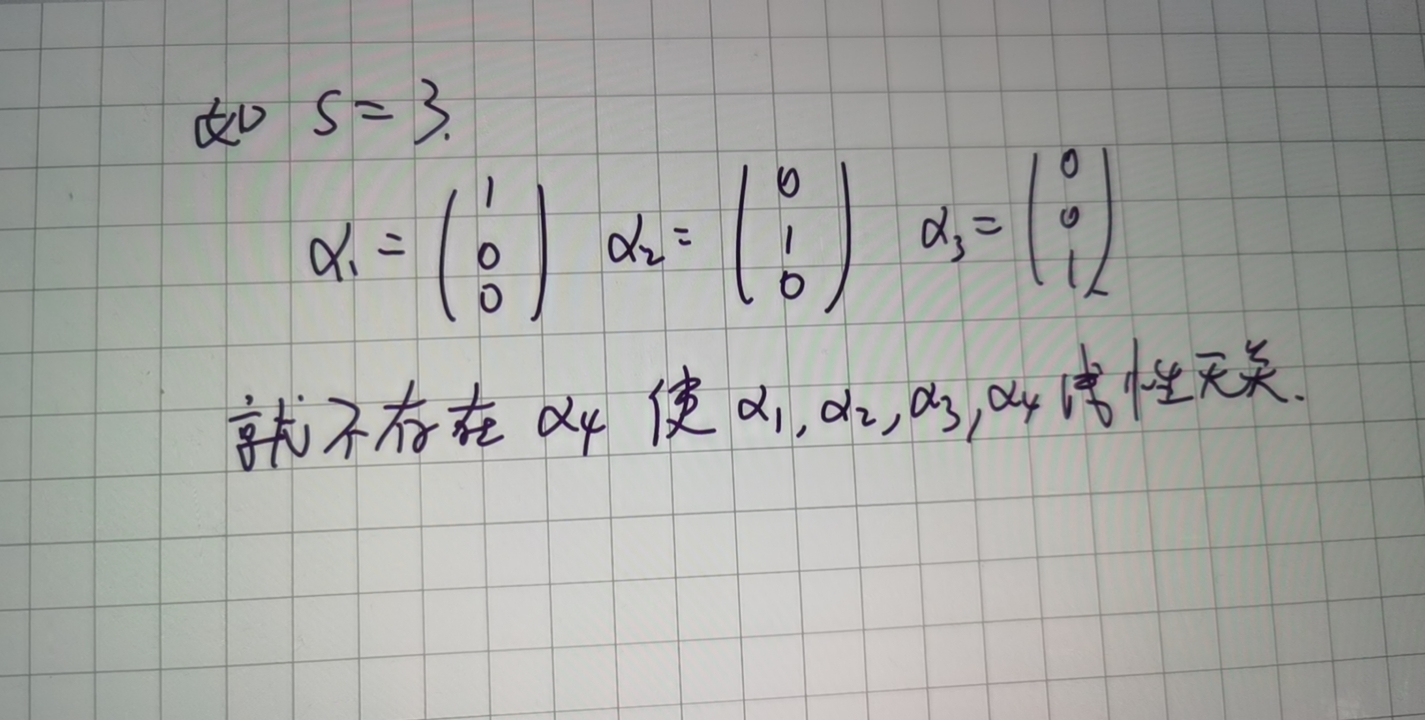 如 S = 3.
α₁ = (1 0 0) α₂ = (0 1 0) α₃ = (0 0 1)
就不存在 α₄ 使 α₁, α₂, α₃, α₄ 线性无关.